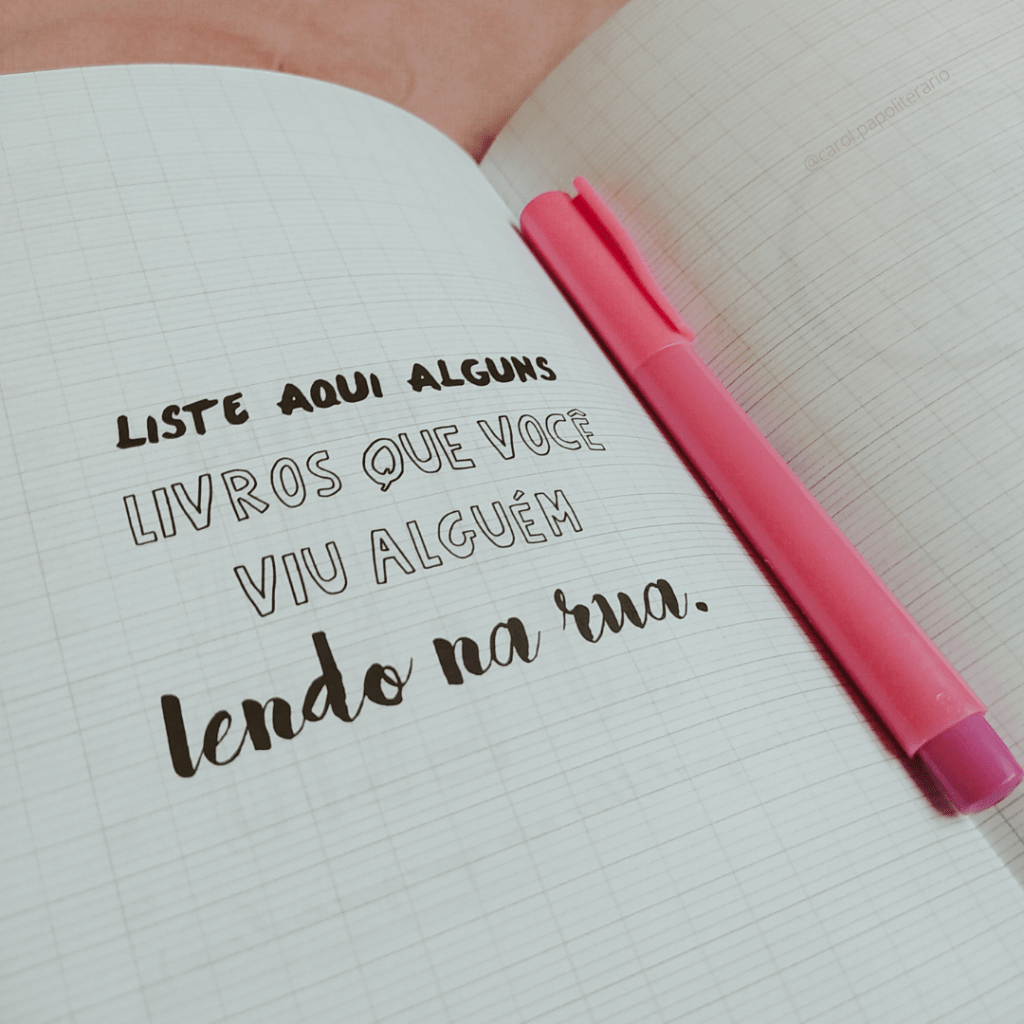 @carol.papoliterario
LISTE AQUI ALGUNS
LIVROS QUE VOCÊ
VIU ALGUÉM
lendo na rua.